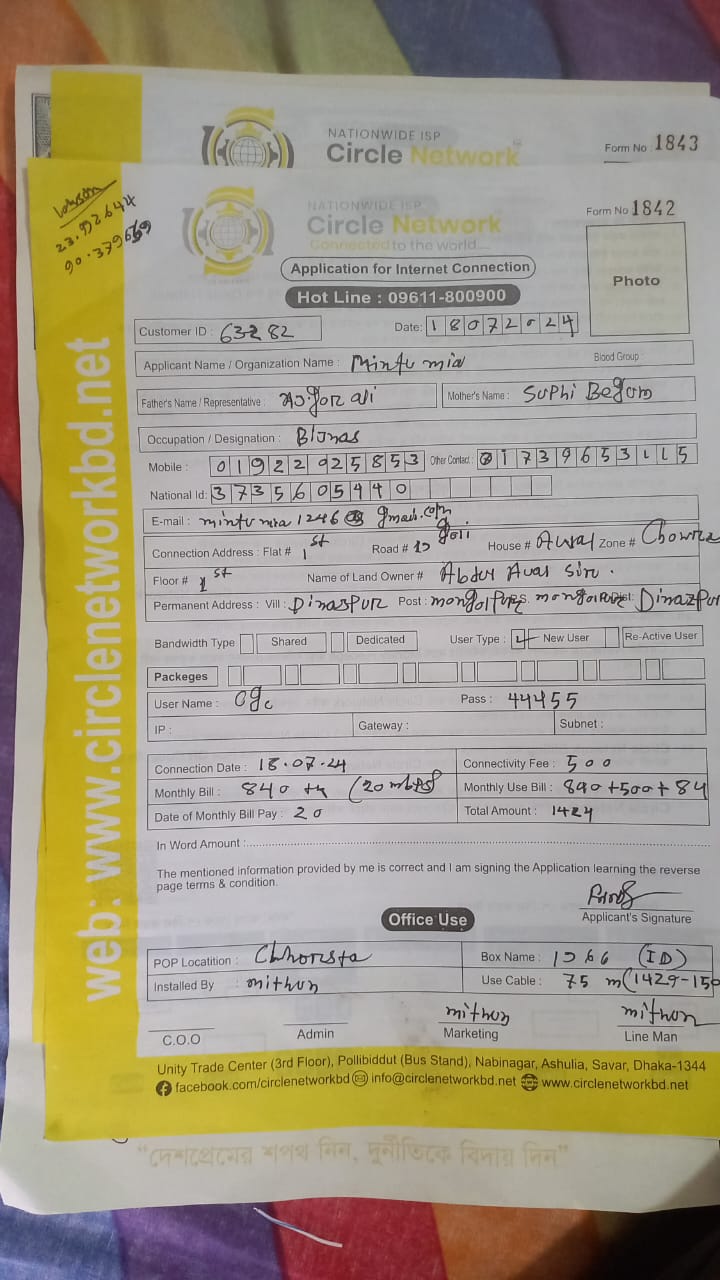 NATIONWIDE ISP
Circle Network
Form No 1843
Location
23.992644
90.379669
NATIONWIDE ISP
Circle Network
Connected to the world...
Form No 1842
Application for Internet Connection
Hot Line : 09611-800900
Photo
Customer ID : 63282
Date: 18072024
Applicant Name / Organization Name : Mintu mia
Blood Group :
Father's Name / Representative : ali
Mother's Name : Suphi Begom
Occupation / Designation : BIJnas
Mobile : 01922925853 Other Contact : 01739653115
National Id: 3735605440
E-mail : mintu mia 1246 @ gmail.com
Connection Address : Flat # 1st Road # goli House # Awal Zone #
Floor # 1st Name of Land Owner # Abdul Aual Sir.
Permanent Address : Vill : Dinazpur Post : P.S. Dist: Dinazpur
Bandwidth Type Shared Dedicated User Type : New User Re-Active User
Packeges
User Name : cgc Pass : 44455
IP : Gateway : Subnet :
Connection Date : 18.07.24 Connectivity Fee : 500
Monthly Bill : 840 (20 mbps) Monthly Use Bill : 840+500+84
Date of Monthly Bill Pay : 20 Total Amount : 1424
In Word Amount :
The mentioned information provided by me is correct and I am signing the Application learning the reverse
page terms & condition.
Applicant's Signature
Office Use
POP Locatition : Box Name : (ID)
Installed By : mithun Use Cable : 75 m
mithun mithun
C.O.O Admin Marketing Line Man
Unity Trade Center (3rd Floor), Pollibiddut (Bus Stand), Nabinagar, Ashulia, Savar, Dhaka-1344
facebook.com/circlenetworkbd info@circlenetworkbd.net www.circlenetworkbd.net
web: www.circlenetworkbd.net
"দেশপ্রেমের শপথ নিন, দুর্নীতিকে বিদায় দিন"